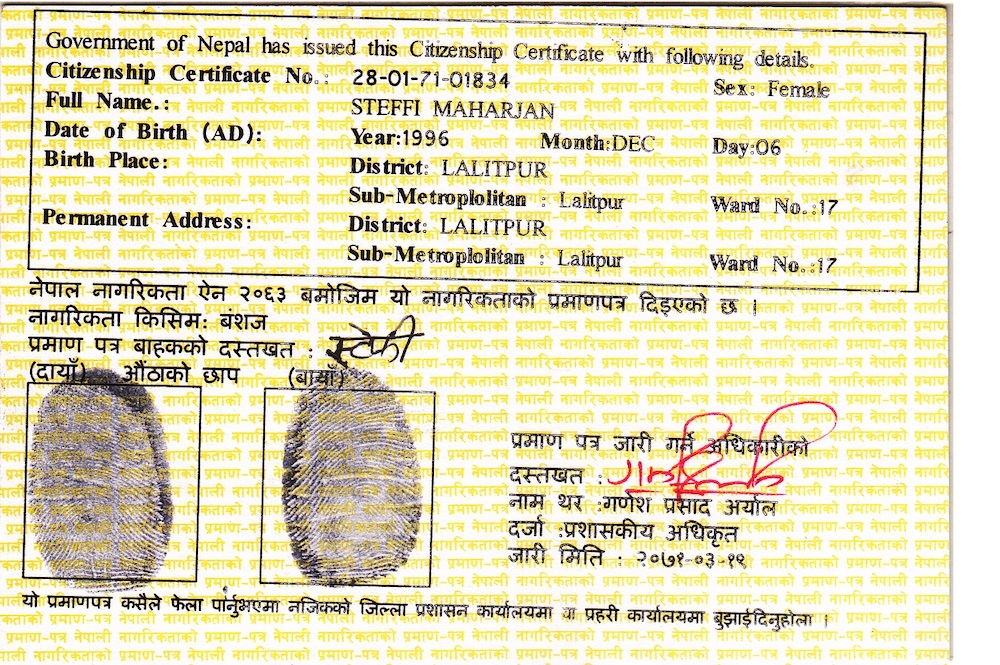 Government of Nepal has issued this Citizenship Certificate with following details.
Citizenship Certificate No.: 28-01-71-01834 Sex: Female
Full Name.: STEFFI MAHARJAN
Date of Birth (AD): Year:1996 Month:DEC Day:06
Birth Place: District: LALITPUR
Sub-Metroplolitan : Lalitpur Ward No.:17
Permanent Address: District: LALITPUR
Sub-Metroplolitan : Lalitpur Ward No.:17
नेपाल नागरिकता ऐन २०६३ बमोजिम यो नागरिकताको प्रमाणपत्र दिइएको छ ।
नागरिकता किसिम: बंशज
प्रमाण पत्र बाहकको दस्तखत : स्टेफी
(दायाँ) औंठाको छाप (बायाँ)
प्रमाण पत्र जारी गर्ने अधिकारीको
दस्तखत :
नाम थर :गणेश प्रसाद अर्याल
दर्जा :प्रशासकीय अधिकृत
जारी मिति : २०७१-०३-१९
यो प्रमाणपत्र कसैले फेला पार्नुभएमा नजिकको जिल्ला प्रशासन कार्यालयमा वा प्रहरी कार्यालयमा बुझाईदिनुहोला ।